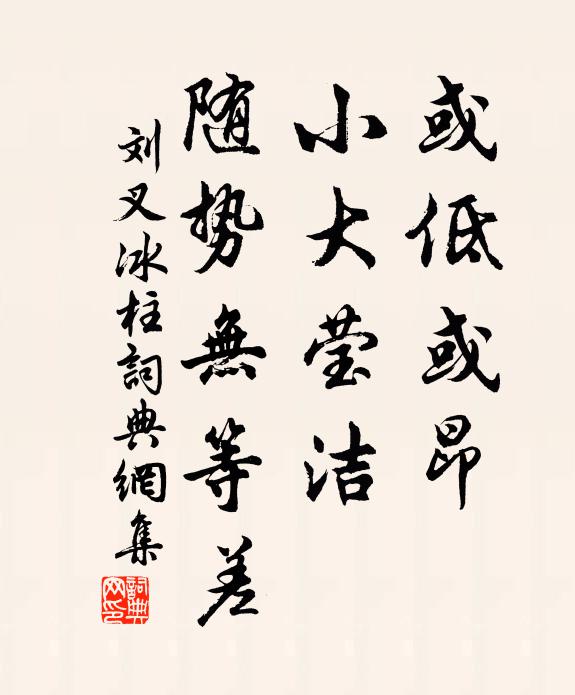 或低或昂
小大莹洁
随势無等差
刘叉冰柱詞典網集
詞典
网印